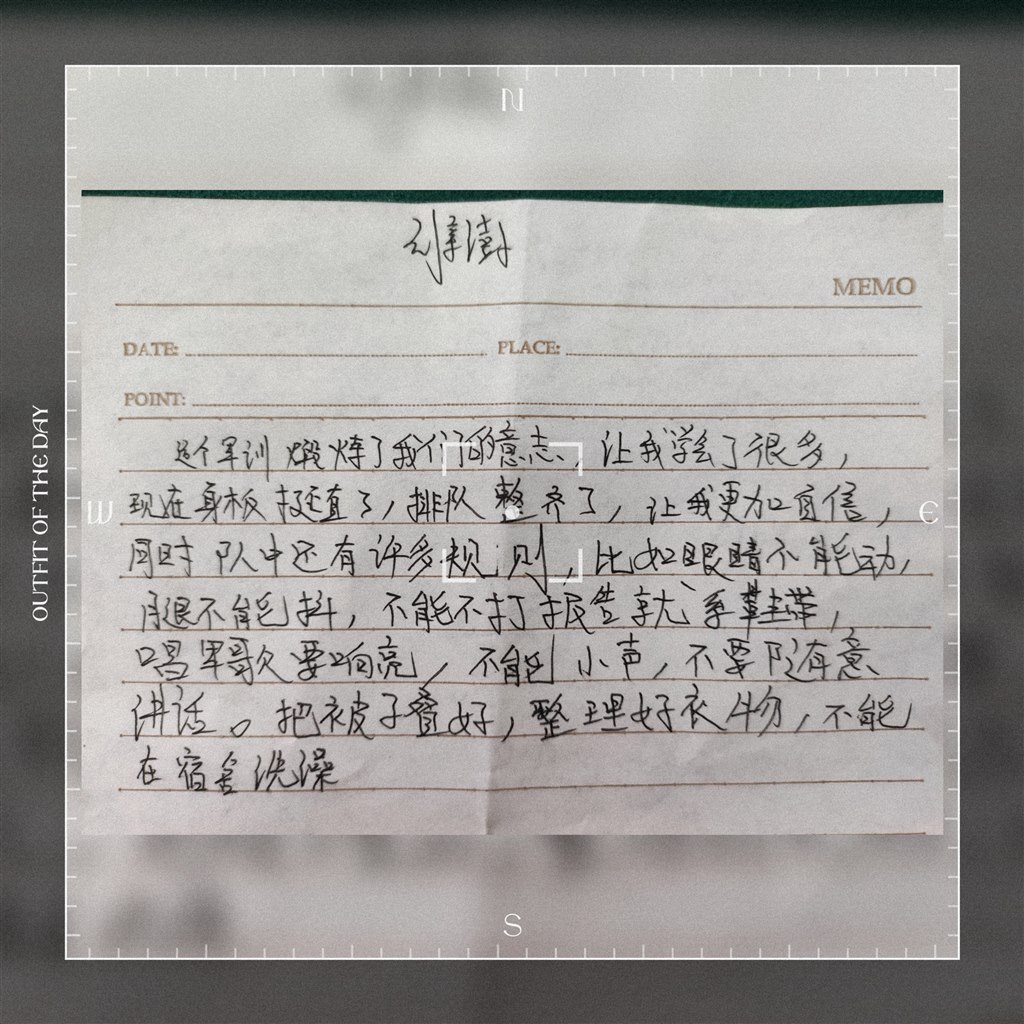 N
MEMO
DATE:
PLACE:
POINT:
这个军训 煅炼了我们的意志，让我学会了很多，
现在身板挺直了，排队整齐了，让我更加自信，
同时队中还有许多规则，比如眼睛不能动，
腿不能抖，不能不打报告就系鞋带，
唱军歌要响亮，不能小声，不要随意
讲话。把被子叠好，整理好衣物，不能
在宿舍洗澡
W
E
S
OUTFIT OF THE DAY